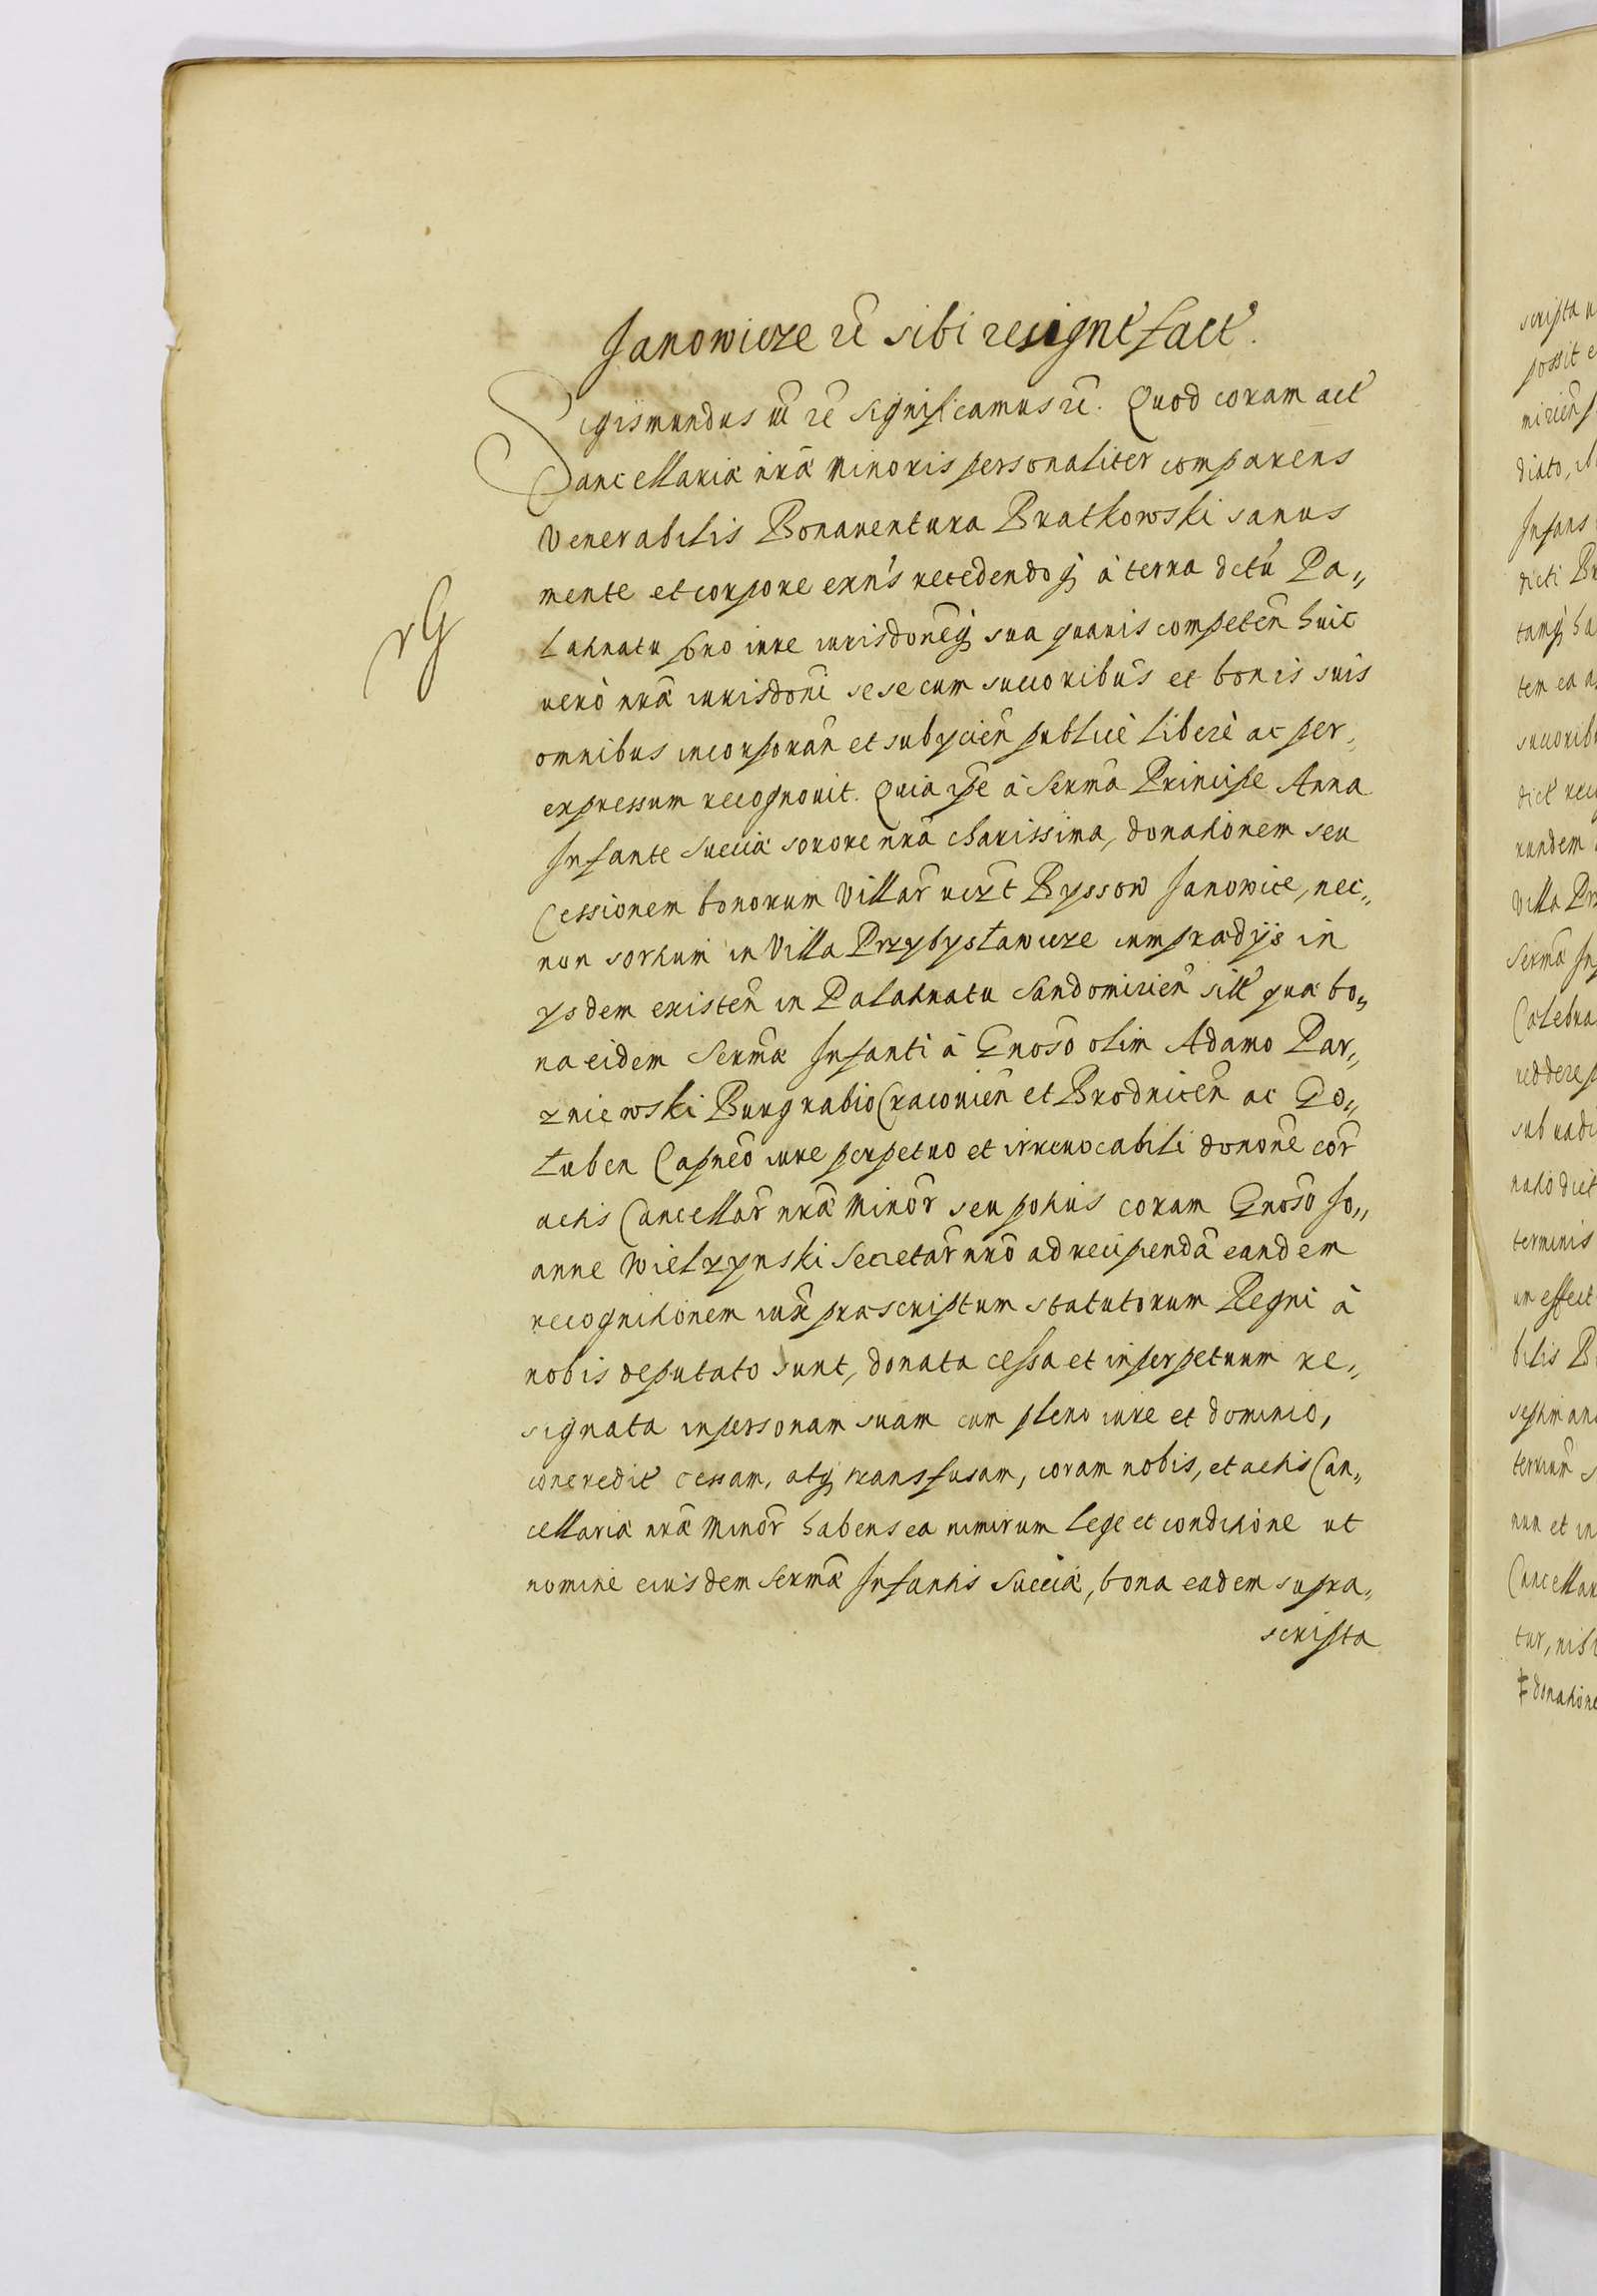 Janowicze rẽ sibi resignt fact.
Sigismundus ưẽ rẽ significamus rẽ. Quod coram act
Cancellariæ nrã Minoris personaliter comparens
Venerabilis Bonaventura Bratkowski sanus
mente et corpore exn's recedendo q̃ à terra dctũ Pa„
latinatu foro iure iurisdonẽq; sua quavis competeñ huic
verò nrã iurisdoni sese cum succoribus et bonis suis
omnibus incorporañ et subycieñ publicè liberè ac per„
expressum recognovit. Quia ipe à Serma Principe Anna
Infante Sueciæ sorore nrã charissima, donationem seu
Cessionem bonorum Villar̃ vczt Byssow Janowice, nec„
non sortium in Villa Przybysławicze cum prædijs in
ysdem existeñ in Palatinatu Sandomirieñ sitt quæ bo„
na eidem Sermæ Infanti à Gnoso olim Adamo Par„
zniewski Burgrabio Cracovieñ et Brodniceñ ac Go„
łuben Capneo iure perpetuo et irrevocabili donone cor̃
actis Cancellar̃ nrã Minor̃ seu potius coram Gnoso Jo„
anne Wielzynski Secretar̃ nro ad recipendã eandem
recognitionem iux præscriptum statutorum Regni à
nobis deputato sunt, donata cessa et in perpetuum re„
signata in personam suam cum pleno iure et dominio,
concredit cessam, atq; transfusam, coram nobis, et actis Can„
cellariæ nrã Minor̃ habens ea nimirum lege et conditione ut
nomine eiusdem Sermã Infantis Sueciæ, bona eadem supra„
scripta
rG
scripta
possit
mirieñ
diato,
Infans
dicti
tamq;
tem ea
succorib
dict
rundem
Villa
Sermã
Calebra
reddere
sub vadi
natio dict
terminis
um effect
bilis
septiman
terrium
nun et in
Cancellar
tur, nisi
donatione